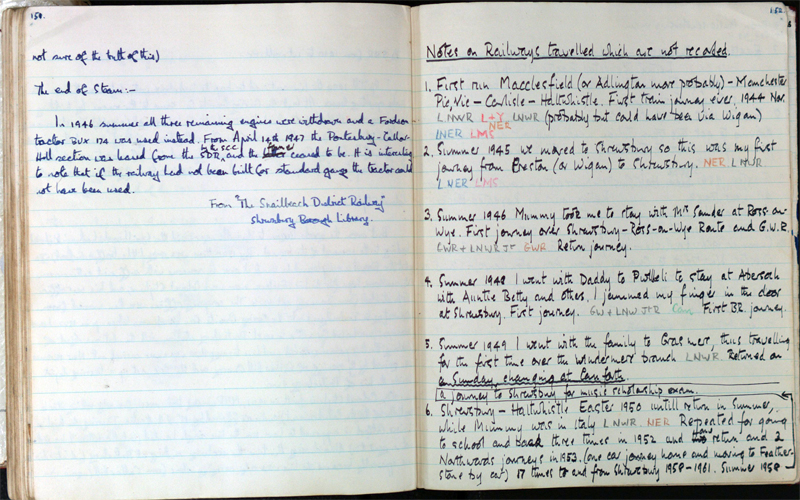 158.
not sure of the truth of this)
The end of Steam:-
In 1946 summer all three remaining engines were withdrawn and a Fordson
tractor BUX 174 was used instead. From April 14th 1947 the Pontesbury - Callow
Hill section was leased from the SDR, and the ceased to be. It is interesting
to note that if the railway had not been built for standard gauge the tractor could
not have been used.
From "The Snailbeach District Railway"
Shrewsbury Borough Library.
152.
Notes on Railways travelled which are not recorded.
1. First run Macclesfield (or Adlington more probably) - Manchester
Pic, Vic - Carlisle - Haltwhistle. First train journey ever. 1944 Nov.
LNWR L+Y LNWR (probably but could have been via Wigan)
NER
LNER LMS
2. Summer 1945 we moved to Shrewsbury so this was my first
journey from Preston (or Wigan) to Shrewsbury. NER LNWR
LNER LMS
3. Summer 1946 Mummy took me to stay with Mrs Sander at Ross-on-
Wye. First journey over Shrewsbury - Ross-on-Wye Route and G.W.R.
GWR + LNWR Jt GWR Return journey.
4. Summer 1948 I went with Daddy to Pwllheli to stay at Abersoch
with Auntie Betty and others. I jammed my finger in the door
at Shrewsbury. First journey. GW + LNW Jt R Cam First BR. journey.
5. Summer 1949 I went with the family to Grasmere, thus travelling
for the first time over the Windermere branch LNWR. Returned on
a Sunday, changing at Carnforth
a journey to Shrewsbury for music scholarship exam.
6. Shrewsbury - Haltwhistle Easter 1950 untill return in Summer,
while Mummy was in Italy LNWR. NER Repeated for going
to school and back three times in 1952 and one return and 2
Northwards journeys in 1953. (one car journey home and moving to Feather-
stone by car) 17 times to and from Shrewsbury 1958 - 1961. Summer 1958